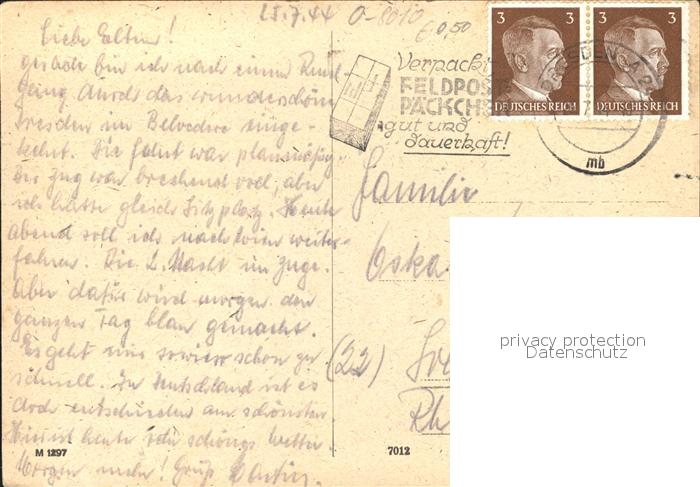 25.7.44 0-8010
€ 0,50
Liebe Eltern!
gerade bin ich nach einem Rund
gang durch das wunderschöne
Dresden im Belvedere einge-
kehrt. Die Fahrt war planmäßig
der Zug war brechend voll, aber
ich hatte gleich Sitzplatz. Heute
abend soll ich nach Wien weiter-
fahren. Die 2. Nacht im Zuge.
Aber dafür wird morgen den
ganzen Tag blau gemacht.
Es geht mir sowieso schon zu
schnell. In Deutschland ist es
doch entschieden am schönsten
Hier ist heute sehr schönes Wetter
Morgen mehr! Gruß
M 1297
Verpackt
FELDPOS
PÄCKCH
gut und
dauerhaft!
3 3
DEUTSCHES REICH
3 3
DEUTSCHES REICH
DRESDEN A
mb
Familie
Oska
(22)
Rh
7012
privacy protection
Datenschutz